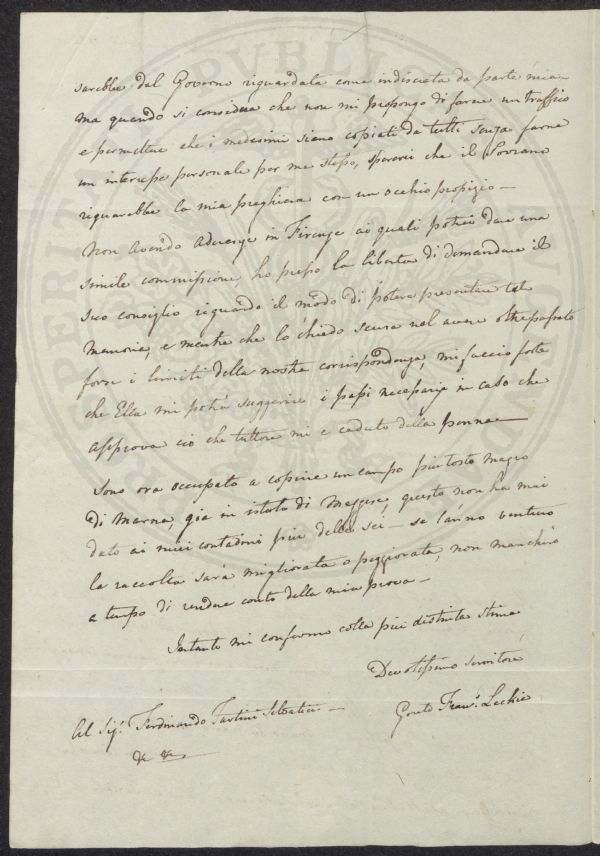 sarebbe dal Governo riguardata come indiscreta da parte mia
ma quando si considera che non mi propongo di farne un traffico
e permettere che i medesimi siano copiati da tutti senza farne
un interesse personale per me stesso, spererei che il Sovrano
riguarebbe la mia preghiera con un occhio propizio —
Non avendo aderenze in Firenze ai quali potrei dare una
simile commissione, ho preso la libertà di domandare il
suo consiglio riguardo il modo di potere presentare tal
memoria, e mentre che lo chiedo scusa nel avere oltrepassato
forse i limiti della nostra corrispondenza, mi faccio forte
che Ella mi potrà suggerire i passi necessarj in caso che
approva ciò che tuttora mi è caduto dalla penna —
Sono ora occupato a coprire un campo piu tosto magro
di marna, già in istato di Maggese, questo non ha mai
dato ai miei contadini piu delle sei — se l'anno venturo
la raccolta sarà migliorata o peggiorata, non mancherò
a tempo di rendere conto della mia prova —
Intanto mi confermo colla piu distinta stima
Devotissimo servitore
Al Sigr. Ferdinando Tartini Salvatici — Gould Fran.s Leckie